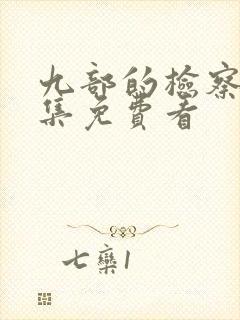 九部的检察
集免费看
七栾1